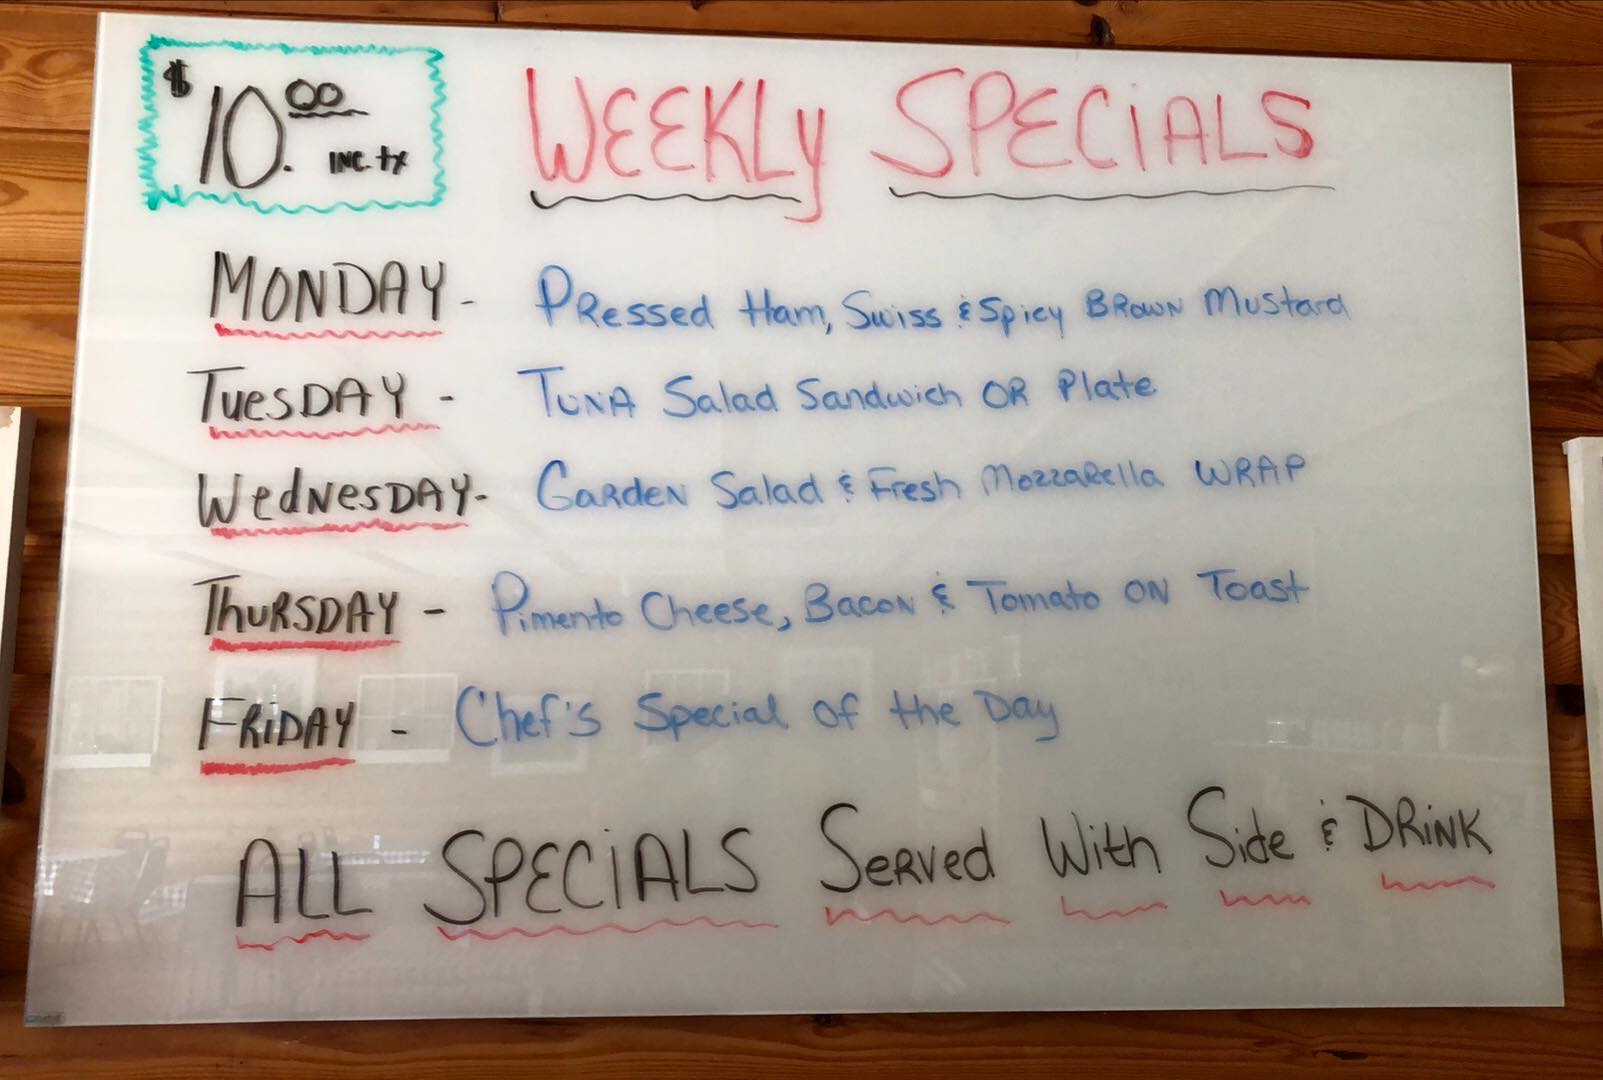 $10.00 INC. tx
WEEKLY SPECiALS
MONDAY - PRessed Ham, Swiss & Spicy BROWN Mustard
TuesDAY - TUNA Salad Sandwich OR Plate
WedNesDAY - GARDEN Salad & Fresh MozzaRella WRAP
ThURSDAY - Pimento Cheese, BacoN & Tomato ON Toast
FRiDAY - Chef's Special of the Day
ALL SPECiALS SeRved With Side & DRiNK